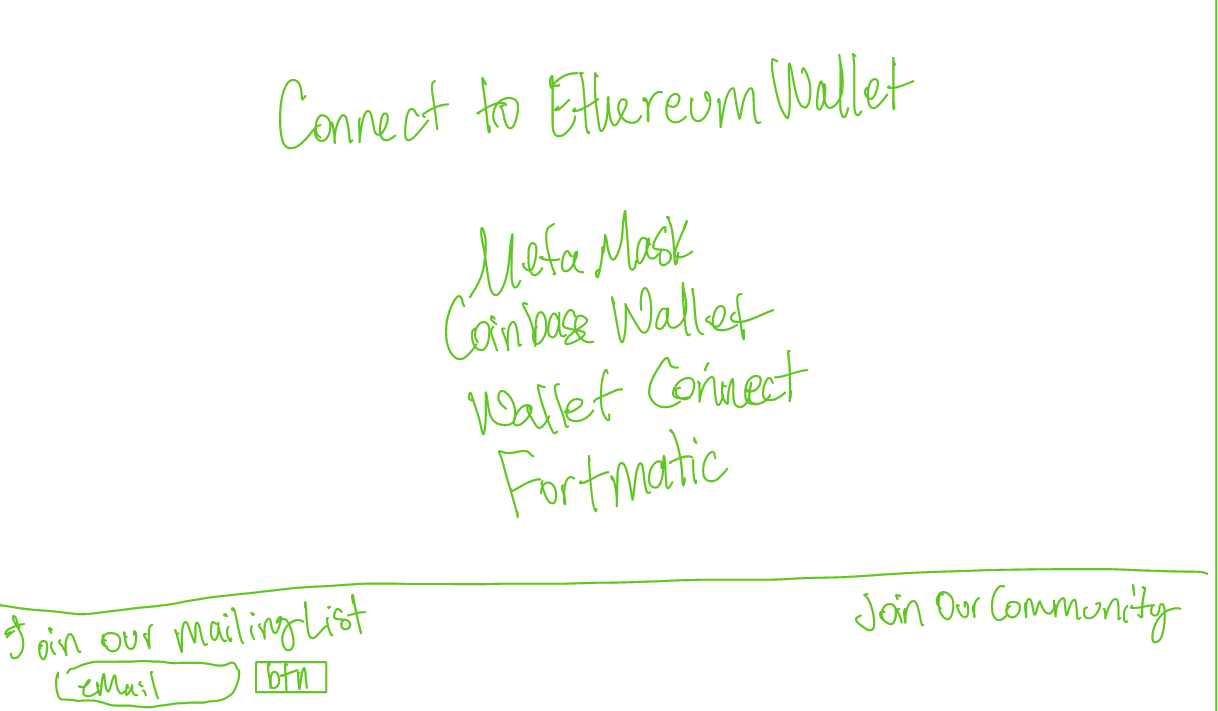 Connect to Ethereum Wallet
Meta Mask
Coinbase Wallet
Wallet Connect
Fortmatic
Join our mailing List
Join Our Community
eMail
btn